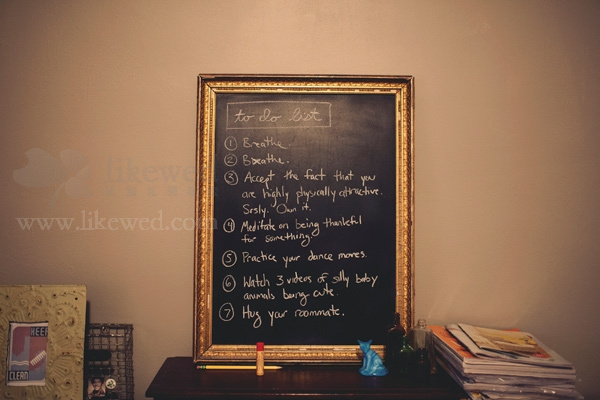 to do list
① Breathe.
② Breathe.
③ Accept the fact that you
are highly physically attractive.
Srsly. Own it.
④ Meditate on being thankful
for something.
⑤ Practice your dance moves.
⑥ Watch 3 videos of silly baby
animals being cute.
⑦ Hug your roommate.
likewed
www.likewed.com
KEEP
CLEAN